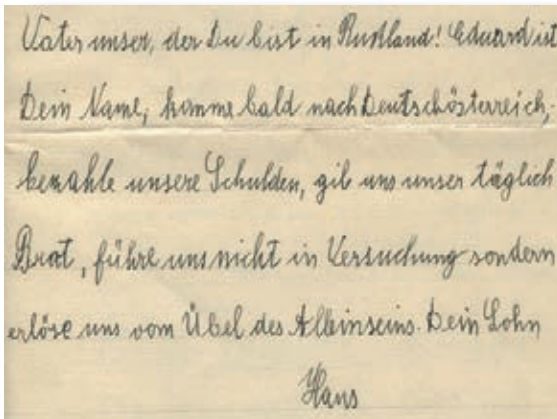 Vater unser, der Du bist in Rußland! Eduard ist
Dein Name, komme bald nach Deutschösterreich,
bezahle unsere Schulden, gib uns unser täglich
Brot, führe uns nicht in Versuchung sondern
erlöse uns vom Übel des Alleinseins. Dein Sohn
Hans